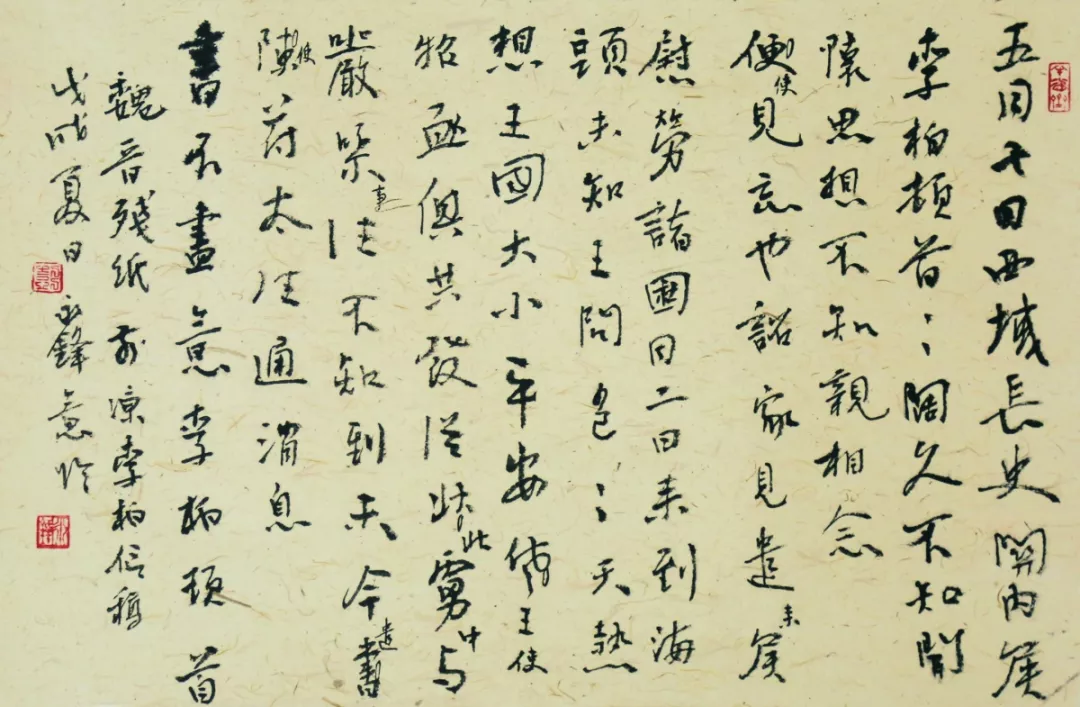 五月七日西域長史關内侯
李柏頓首〻闊久不知聞
懷思想不知親相念
便使見忘也詔家見遣来侯
慰勞諸國月二日来到海
頭未知王問邑〻天熱
想王國大小平安王使
俱共發從北此虜中与
嚴事往不知到未今遣書
使苻太往通消息
書不盡意李柏頓首
魏晋殘紙前凉李柏信稿
戊戌夏日永鋒意臨